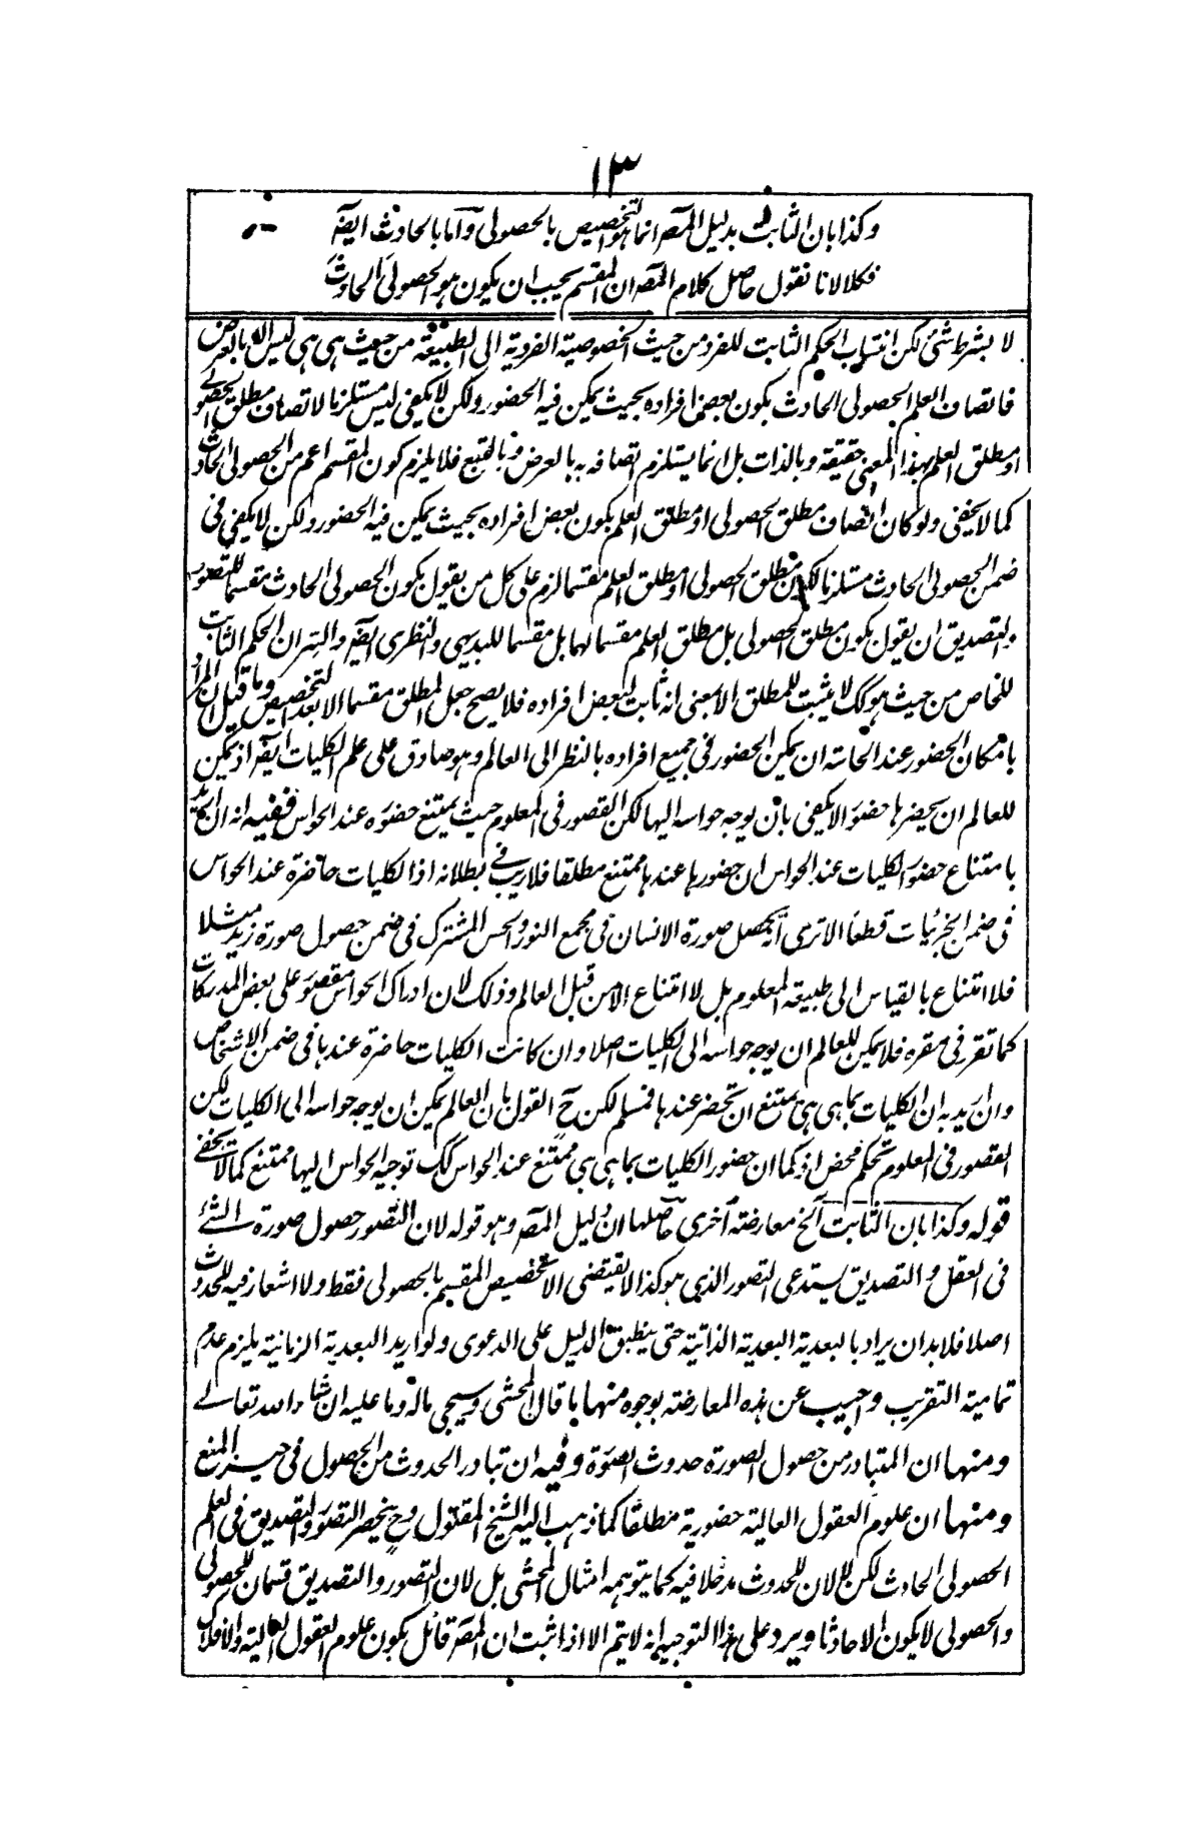 ١٣
وكذا بان الثابت بدليل المصر انما هو التخصيص بالحصولى وآما بالحادث ايضًا
فكلا لانا نقول حاصل كلام المصر ان المقسم يجب ان يكون هو الحصولى الحادث
لا بشرط شئ لكن انتساب الحكم الثابت للفرد من حيث الخصوصية الفردية الى الطبيعة من حيث هى هى ليس الا بالعرض
فاتصاف العلم الحصولى الحادث بكون بعض افراده بحيث يمكن فيه الحضور ولكن لا يكفى ليس مستلزما لاتصاف مطلق الحصولى
او مطلق العلم بهذا المعنى حقيقة وبالذات بل انما يستلزم اتصافه به بالعرض وبالتبع فلا يلزم كون المقسم اعم من الحصولى الحادث
كما لا يخفى ولو كان اتصاف مطلق الحصولى او مطلق العلم بكون بعض افراده بحيث يمكن فيه الحضور ولكن لا يكفى فى
ضمن الحصولى الحادث مستلزما لكون مطلق الحصولى او مطلق العلم مقسما لزم على كل من يقول بكون الحصولى الحادث مقسما للتصور
والتصديق ان يقول بكون مطلق الحصولى بل مطلق العلم مقسما لهما بل مقسما للبديهى والنظرى ايضًا والسر ان الحكم الثابت
للخاص من حيث هو كك لا يثبت للمطلق الا بمعنى انه ثابت لبعض افراده فلا يصح جعل المطلق مقسما الا بعد التخصيص وما قيل ان المراد
بامكان الحضور عند الحاسة ان يمكن الحضور فى جميع افراده بالنظر الى العالم وهو صادق على علم الكليات ايضًا اذ يمكن
للعالم ان يحضرها حضورا لا يكفى بان يوجه حواسه اليها لكن القصور فى المعلوم حيث يمتنع حضوره عند الحواس ففيه انه ان اريد
بامتناع حضور الكليات عند الحواس ان حضورها عندها ممتنع مطلقا فلا ريب فى بطلانه اذ الكليات حاضرة عند الحواس
فى ضمن الجزئيات قطعا الا ترى انه يحصل صورة الانسان فى مجمع النور والحس المشترك فى ضمن حصول صورة زيد مثلا
فلا امتناع بالقياس الى طبيعة المعلوم بل لا امتناع الا من قبل العالم وذلك لان ادراك الحواس مقصور على بعض المدركات
كما تقرر فى مقره فلا يمكن للعالم ان يوجه حواسه الى الكليات اصلا وان كانت الكليات حاضرة عندها فى ضمن الاشخاص
وان اريد به ان الكليات بما هى هى يمتنع ان تحضر عندها فمسلم لكن ح القول بان العالم يمكن ان يوجه حواسه الى الكليات لكن
القصور فى المعلوم تحكم محض اذ كما ان حضور الكليات بما هى هى ممتنع عند الحواس كك توجيه الحواس اليها ممتنع كما لا يخفى
قوله وكذا بان الثابت آلخ معارضة اخرى حاصلها ان دليل المصر وهو قوله لان التصور حصول صورة الشئ
فى العقل والتصديق يستدعى التصور الذى هو كذا لا يقتضى الا تخصيص المقسم بالحصولى فقط ولا اشعار فيه للحدوث
اصلا فلا بد ان يراد بالبعدية البعدية الذاتية حتى ينطبق الدليل على الدعوى ولو اريد البعدية الزمانية يلزم عدم
تمامية التقريب واجيب عن هذه المعارضة بوجوه منها ما قال المحشى وسيجى ماله وما عليه ان شاء الله تعالى
ومنها ان المتبادر من حصول الصورة حدوث الصورة وفيه ان تبادر الحدوث من الحصول فى حيز المنع
ومنها ان علوم العقول العالية حضورية مطلقا كما ذهب اليه الشيخ المقتول وح ينحصر التصور والتصديق فى العلم
الحصولى الحادث لكن لا لان للحدوث مدخلا فيه كما يتوهمه امثال المحشى بل لان التصور والتصديق قسمان للحصولى
والحصولى لا يكون الا حادثا ويرد على هذا التوجيه انه لا يتم الا اذا ثبت ان المصر قائل بكون علوم العقول العالية والافلاك